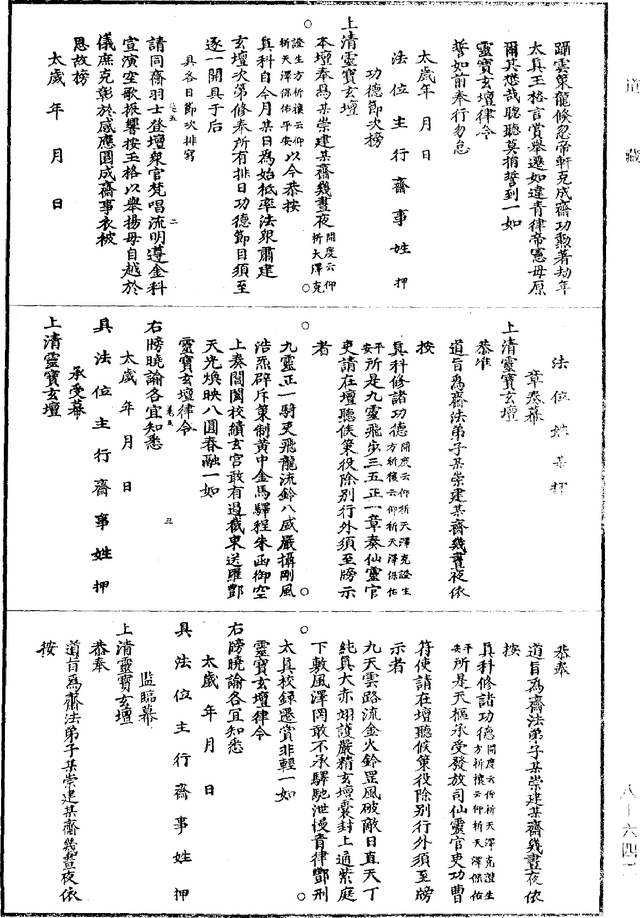 道藏
躡雲策龍倏忽帝軒克成齋功勳著劫年
太真玉格言賞舉遷如違青律帝憲毋原
爾其懋哉聰聽莫捐誓到一如
靈寶玄壇律令
誓如前奉行勿怠
太歲年月日
法位主行齋事姓押
功德節次榜
上清靈寶玄壇
本壇奉為某崇建某齋幾晝夜開度云仰祈天澤克
證生方祈禳云仰祈天澤保佑平安以今恭按
真科自今月某日為始袛率法眾肅建
玄壇次第修奉所有排日功德節目須至
逐一開具于后
具各日節次排寫
請同齋羽士登壇眾官梵唱流明遵金科
卷五
二
宣演空歌振響按玉格以舉揚毋自越於
儀庶克彰於感應圓成齋事衣被
恩故榜
太歲年月日
法位姓某押
章奏幕
上清靈寶玄壇
恭准
道旨為齋法弟子某崇建某齋幾晝夜依
按
真科修諸功德開度云仰祈天澤克證生方祈禳云仰祈天澤保佑
平安所是九靈飛步三五正一章奏仙靈官
吏請在壇聽候策役除別行外須至牓示
者
九靈正一騎吏飛龍流鈴八威嚴攝剛風
浩炁辟斥策制黃中金馬驛程朱函御空
上奏閶闔校績玄宮敢有過截東送羅酆
天光煥映八圓春融一如
靈寶玄壇律令
卷五
三
右牓曉諭各宜知悉
太歲年月日
具法位主行齋事姓押
承受幕
上清靈寶玄壇
恭奉
道旨為齋法弟子某崇建某齋幾晝夜依
按
真科修諸功德開度云仰祈天澤克證生方祈禳云仰祈天澤保佑
平安所是天樞承受發放司仙靈官吏功曹
符使請在壇聽候策役除別行外須至牓
示者
九天雲路流金火鈴罡風破敵日直天丁
純真大赤翊護嚴精玄壇囊封上通紫庭
下敷風澤罔敢不承驛馳泄慢青律酆刑
太真校錄遷賞非輕一如
靈寶玄壇律令
右牓曉諭各宜知悉
太歲年月日
具法位主行齋事姓押
監臨幕
上清靈寶玄壇
恭奉
道旨為齋法弟子某崇建某齋幾晝夜依
按